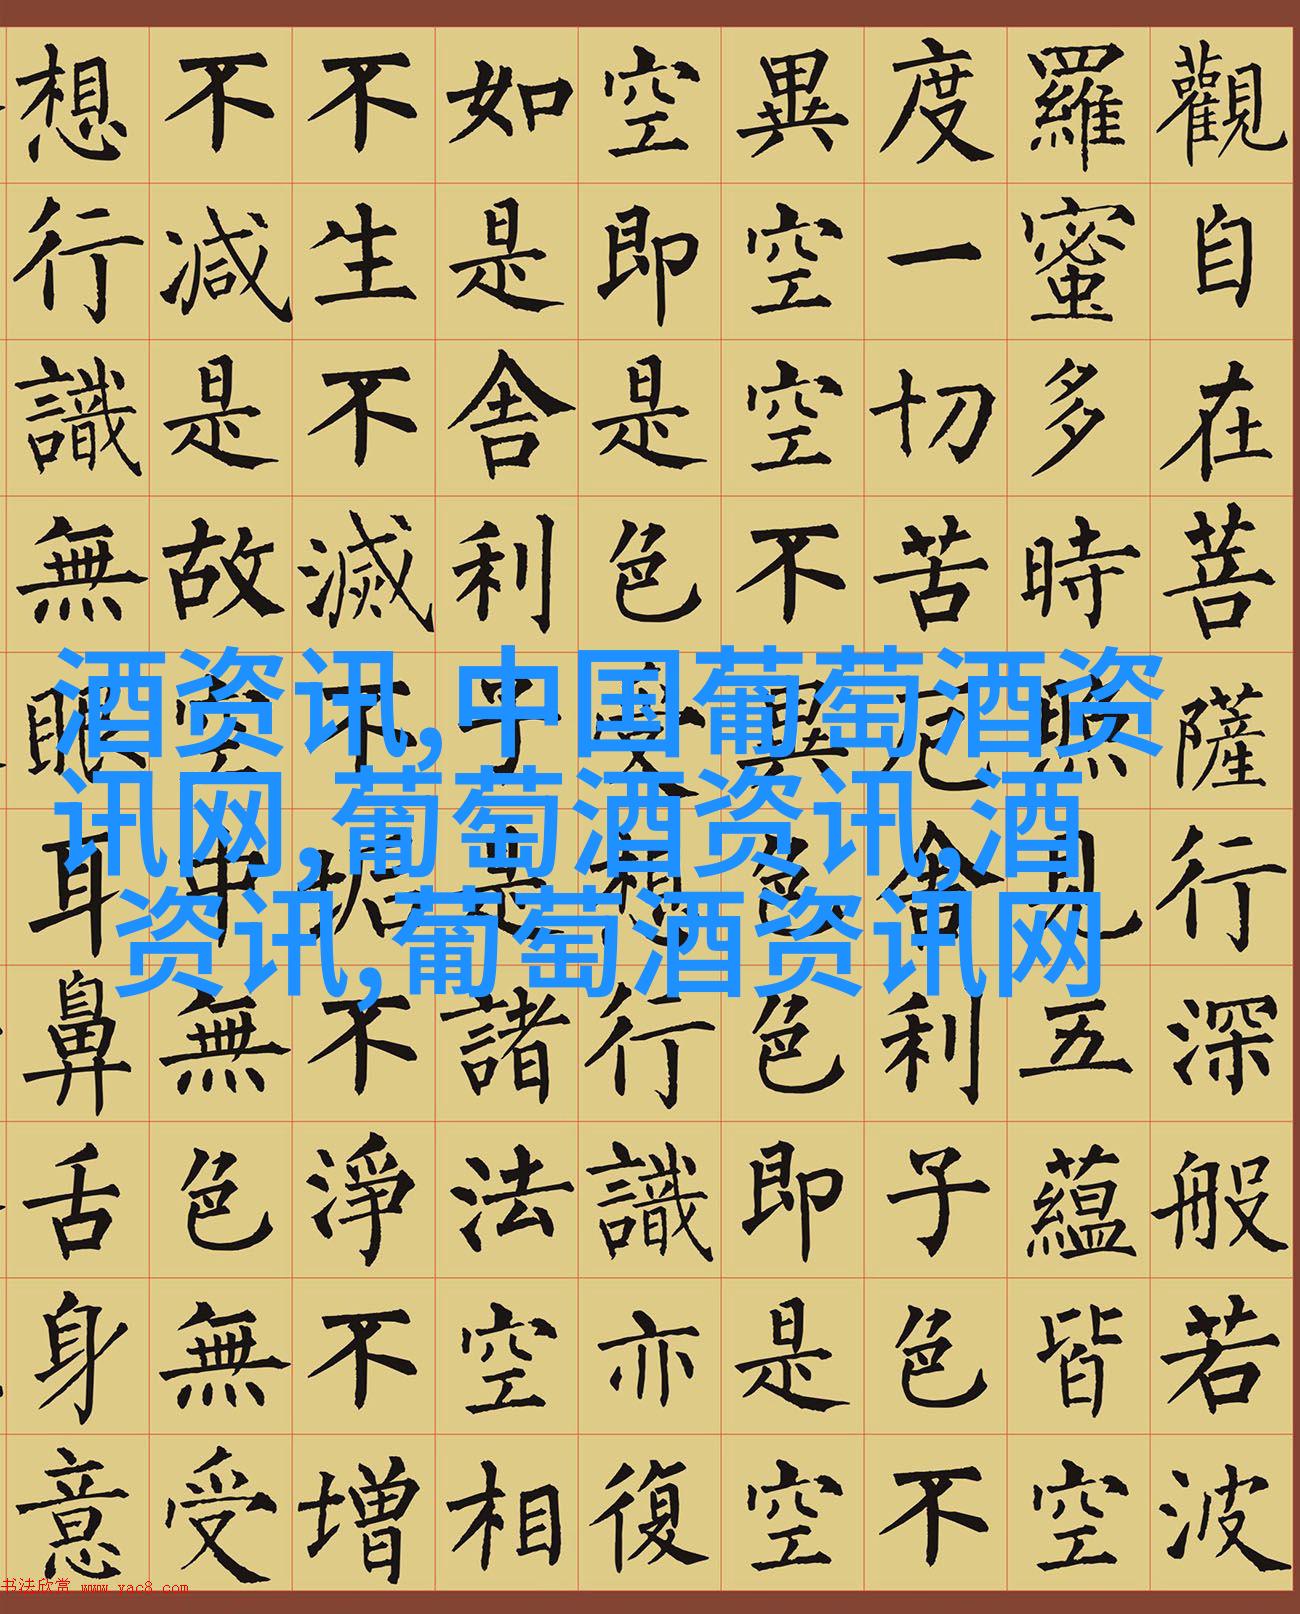 觀自在菩薩行深般若波
羅蜜多時照見五蘊皆空
度一切苦厄舍利子色不
異空空不異色色即是空
空即是色受想行識亦復
如是舍利子是諸法空相
不生不滅不垢不淨不增
不減是故空中無色無受
想行識無眼耳鼻舌身意
酒资讯,中国葡萄酒资
讯网,葡萄酒资讯,酒
资讯,葡萄酒资讯网
书法欣赏 www.yac8.com